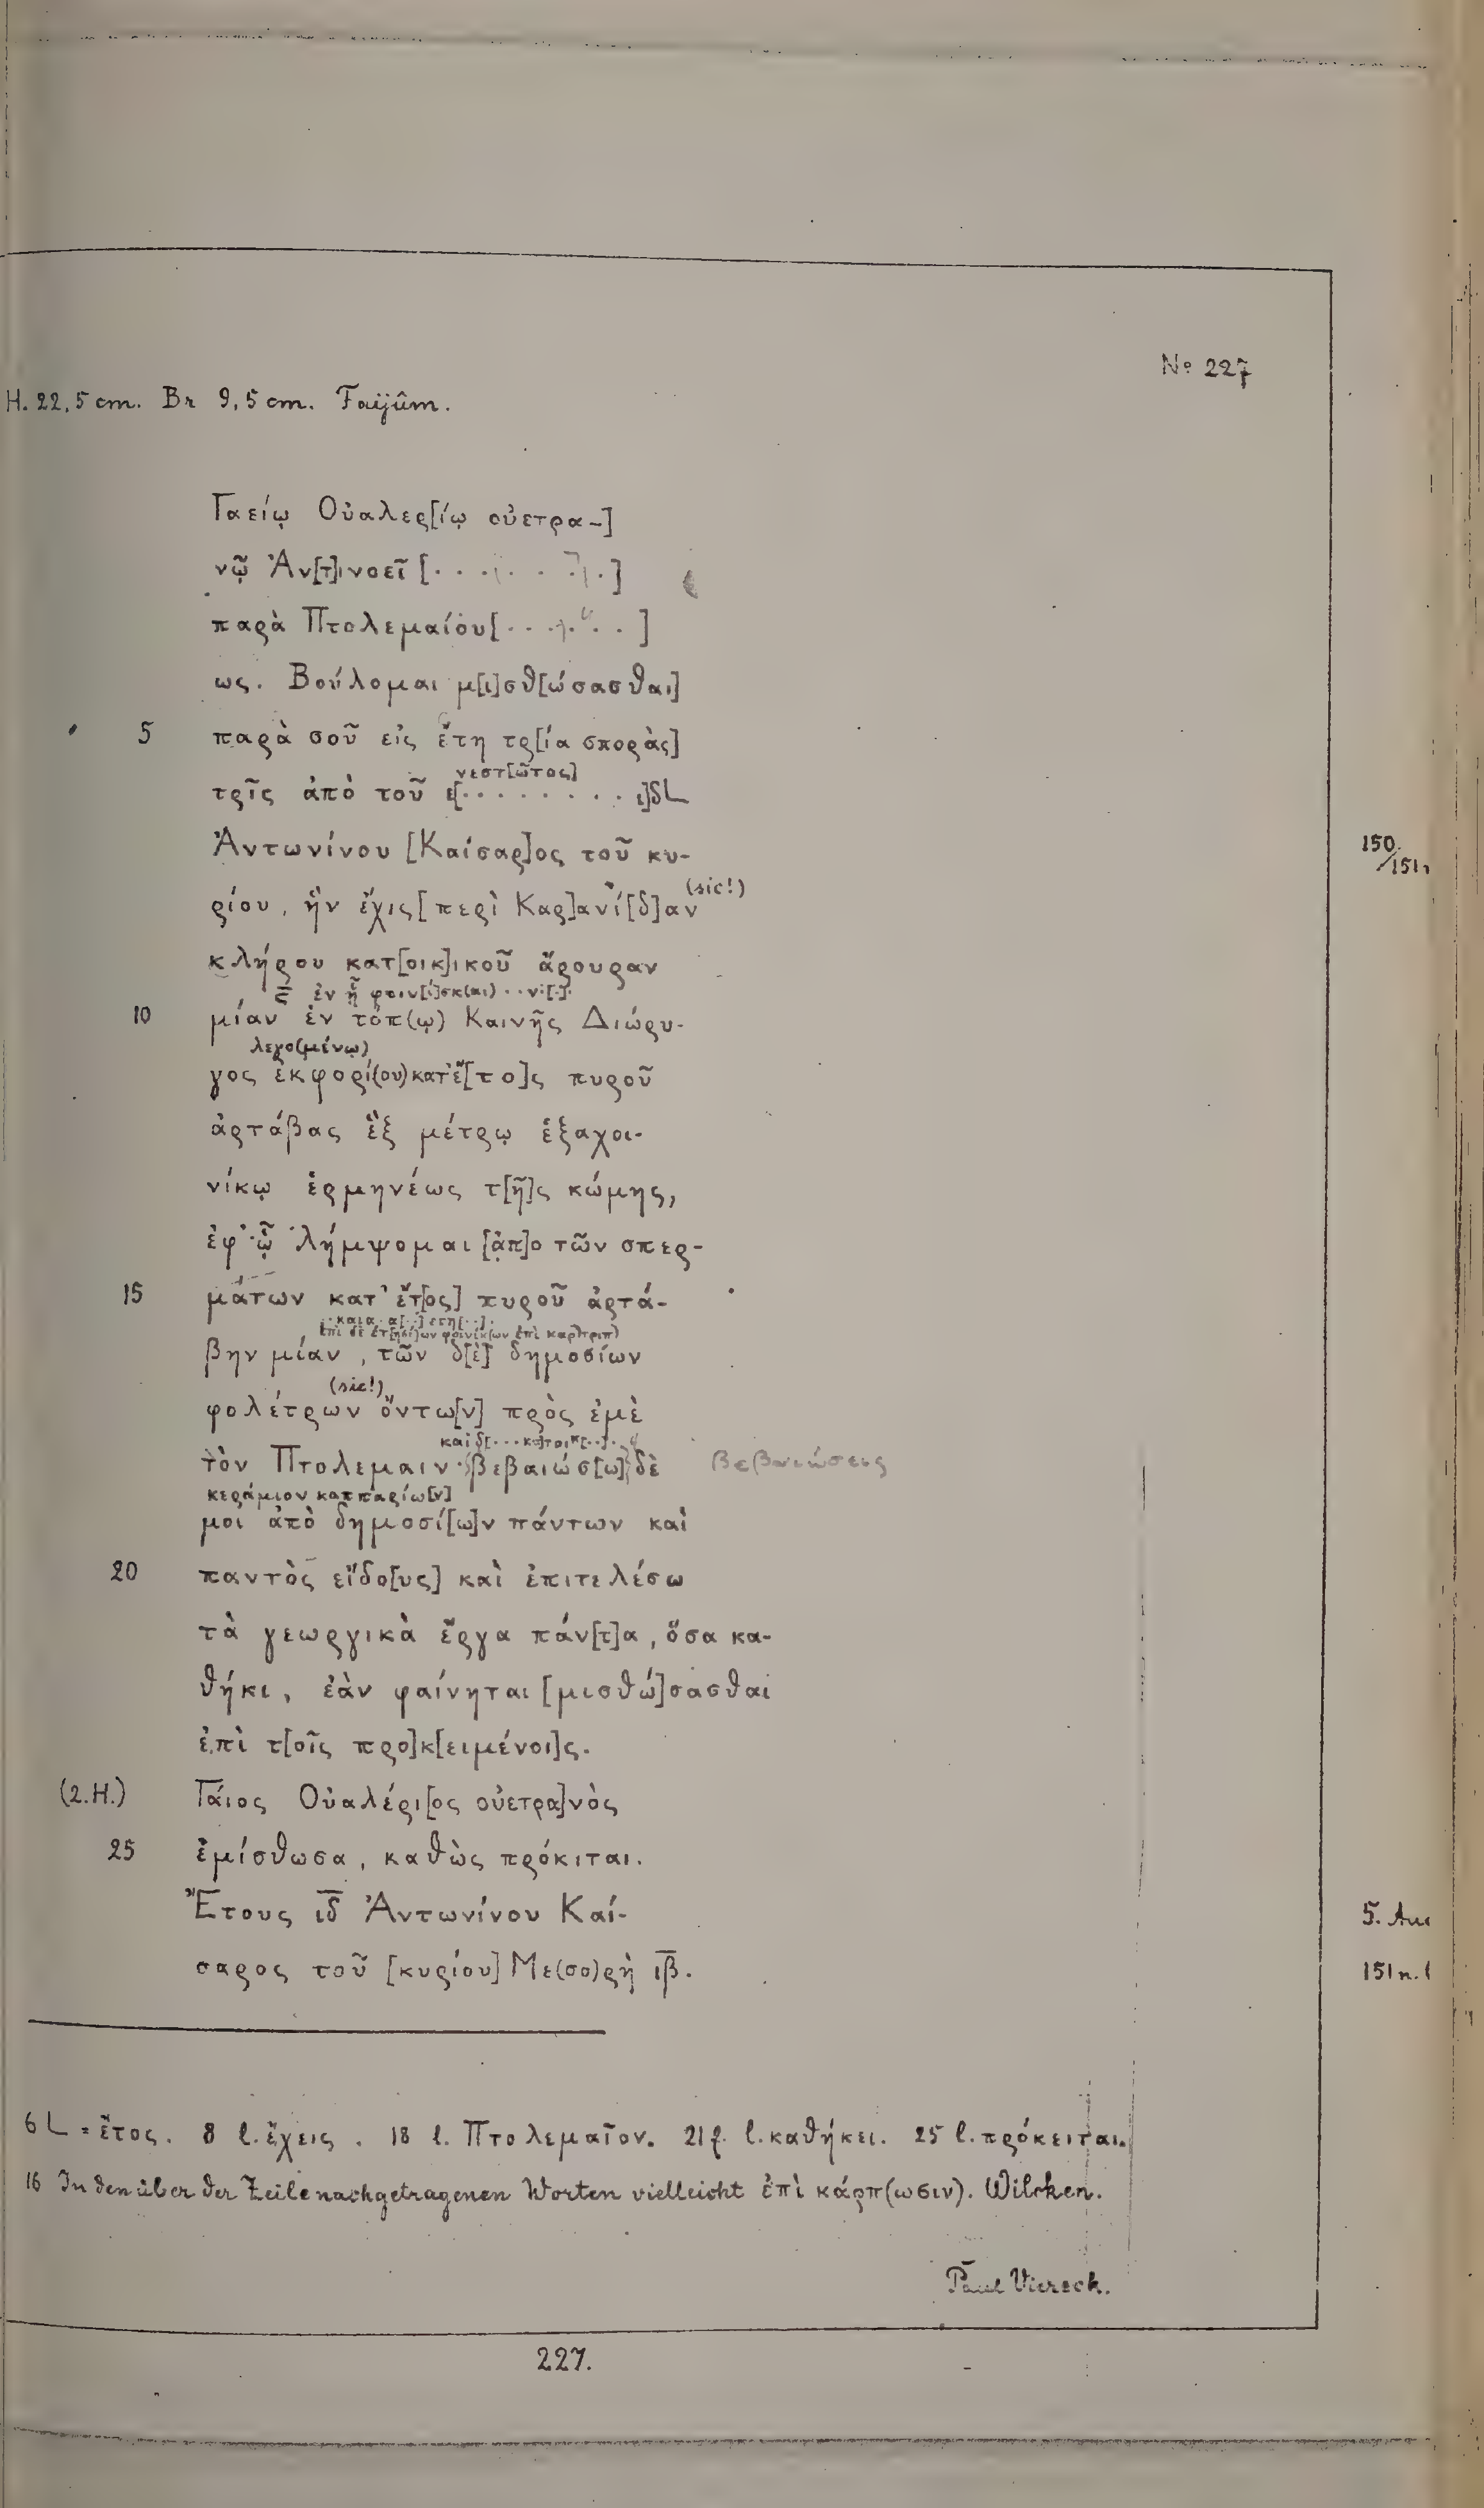 Nº 227
H. 22,5 cm. Br 9,5 cm. Faijûm.
Γαείῳ Οὐαλερ[ίῳ οὐετρα-]
νῷ Ἀν[τ]ινοεῖ [· · · · · · · ·]
παρὰ Πτολεμαίου[· · · · · · ]
ως. Βούλομαι μ[ι]σθ[ώσασθαι]
5 παρὰ σοῦ εἰς ἔτη τρ[ία σπορὰς]
νεστ[ῶτος]
τρῖς ἀπὸ τοῦ ε[· · · · · · · · ι]δL
Ἀντωνίνου [Καίσαρ]ος τοῦ κυ-
150/151
ρίου, ἣν ἔχις [περὶ Καρ]ανί[δ]αν (sic!)
κλήρου κατ[οικ]ικοῦ ἄρουραν
ἐν ᾗ φοιν[ί]σκ(αι) · · ν·[·]·
10 μίαν ἐν τόπ(ῳ) Καινῆς Διώρυ-
λεγο(μένῳ)
γος ἐκφορί(ου) κατ' ἔ[το]ς πυροῦ
ἀρτάβας ἓξ μέτρῳ ἑξαχοι-
νίκῳ ἑρμηνέως τ[ῆ]ς κώμης,
ἐφ' ᾧ λήμψομαι [ἀπ]ο τῶν σπερ-
15 μάτων κατ' ἔτ[ος] πυροῦ ἀρτά-
ἐπὶ δὲ ἐτ[ησί]ων φοινίκ(ων ἐπὶ καρ)τριπ)
βην μίαν, τῶν δ[ὲ] δημοσίων
(sic!)
φολέτρων ὄντω[ν] πρὸς ἐμὲ
καὶ δ[· · · κα]τοικ[· ·]·
τὸν Πτολεμαιν· βεβαιώσ[ω] δὲ βεβαιώσεις
κεράμιον καππαρίω[ν]
μοι ἀπὸ δημοσί[ω]ν πάντων καὶ
20 παντὸς εἴδο[υς] καὶ ἐπιτελέσω
τὰ γεωργικὰ ἔργα πάν[τ]α, ὅσα κα-
θήκι, ἐὰν φαίνηται [μισθώ]σασθαι
ἐπὶ τ[οῖς προ]κ[ειμένοι]ς.
(2.H.) Γάιος Οὐαλέρι[ος οὐετρα]νὸς
25 ἐμίσθωσα, καθὼς πρόκιται.
Ἔτους ιδ Ἀντωνίνου Καί-
5. Au
σαρος τοῦ [κυρίου] Με(σο)ρὴ ιβ.
151 n.
6 L = ἔτος. 8 l. ἔχεις. 18 l. Πτολεμαῖον. 21 f. l. καθήκει. 25 l. πρόκειται.
16 In den über der Zeile nachgetragenen Worten vielleicht ἐπὶ κάρπ(ωσιν). Wilcken.
Paul Viereck.
227.